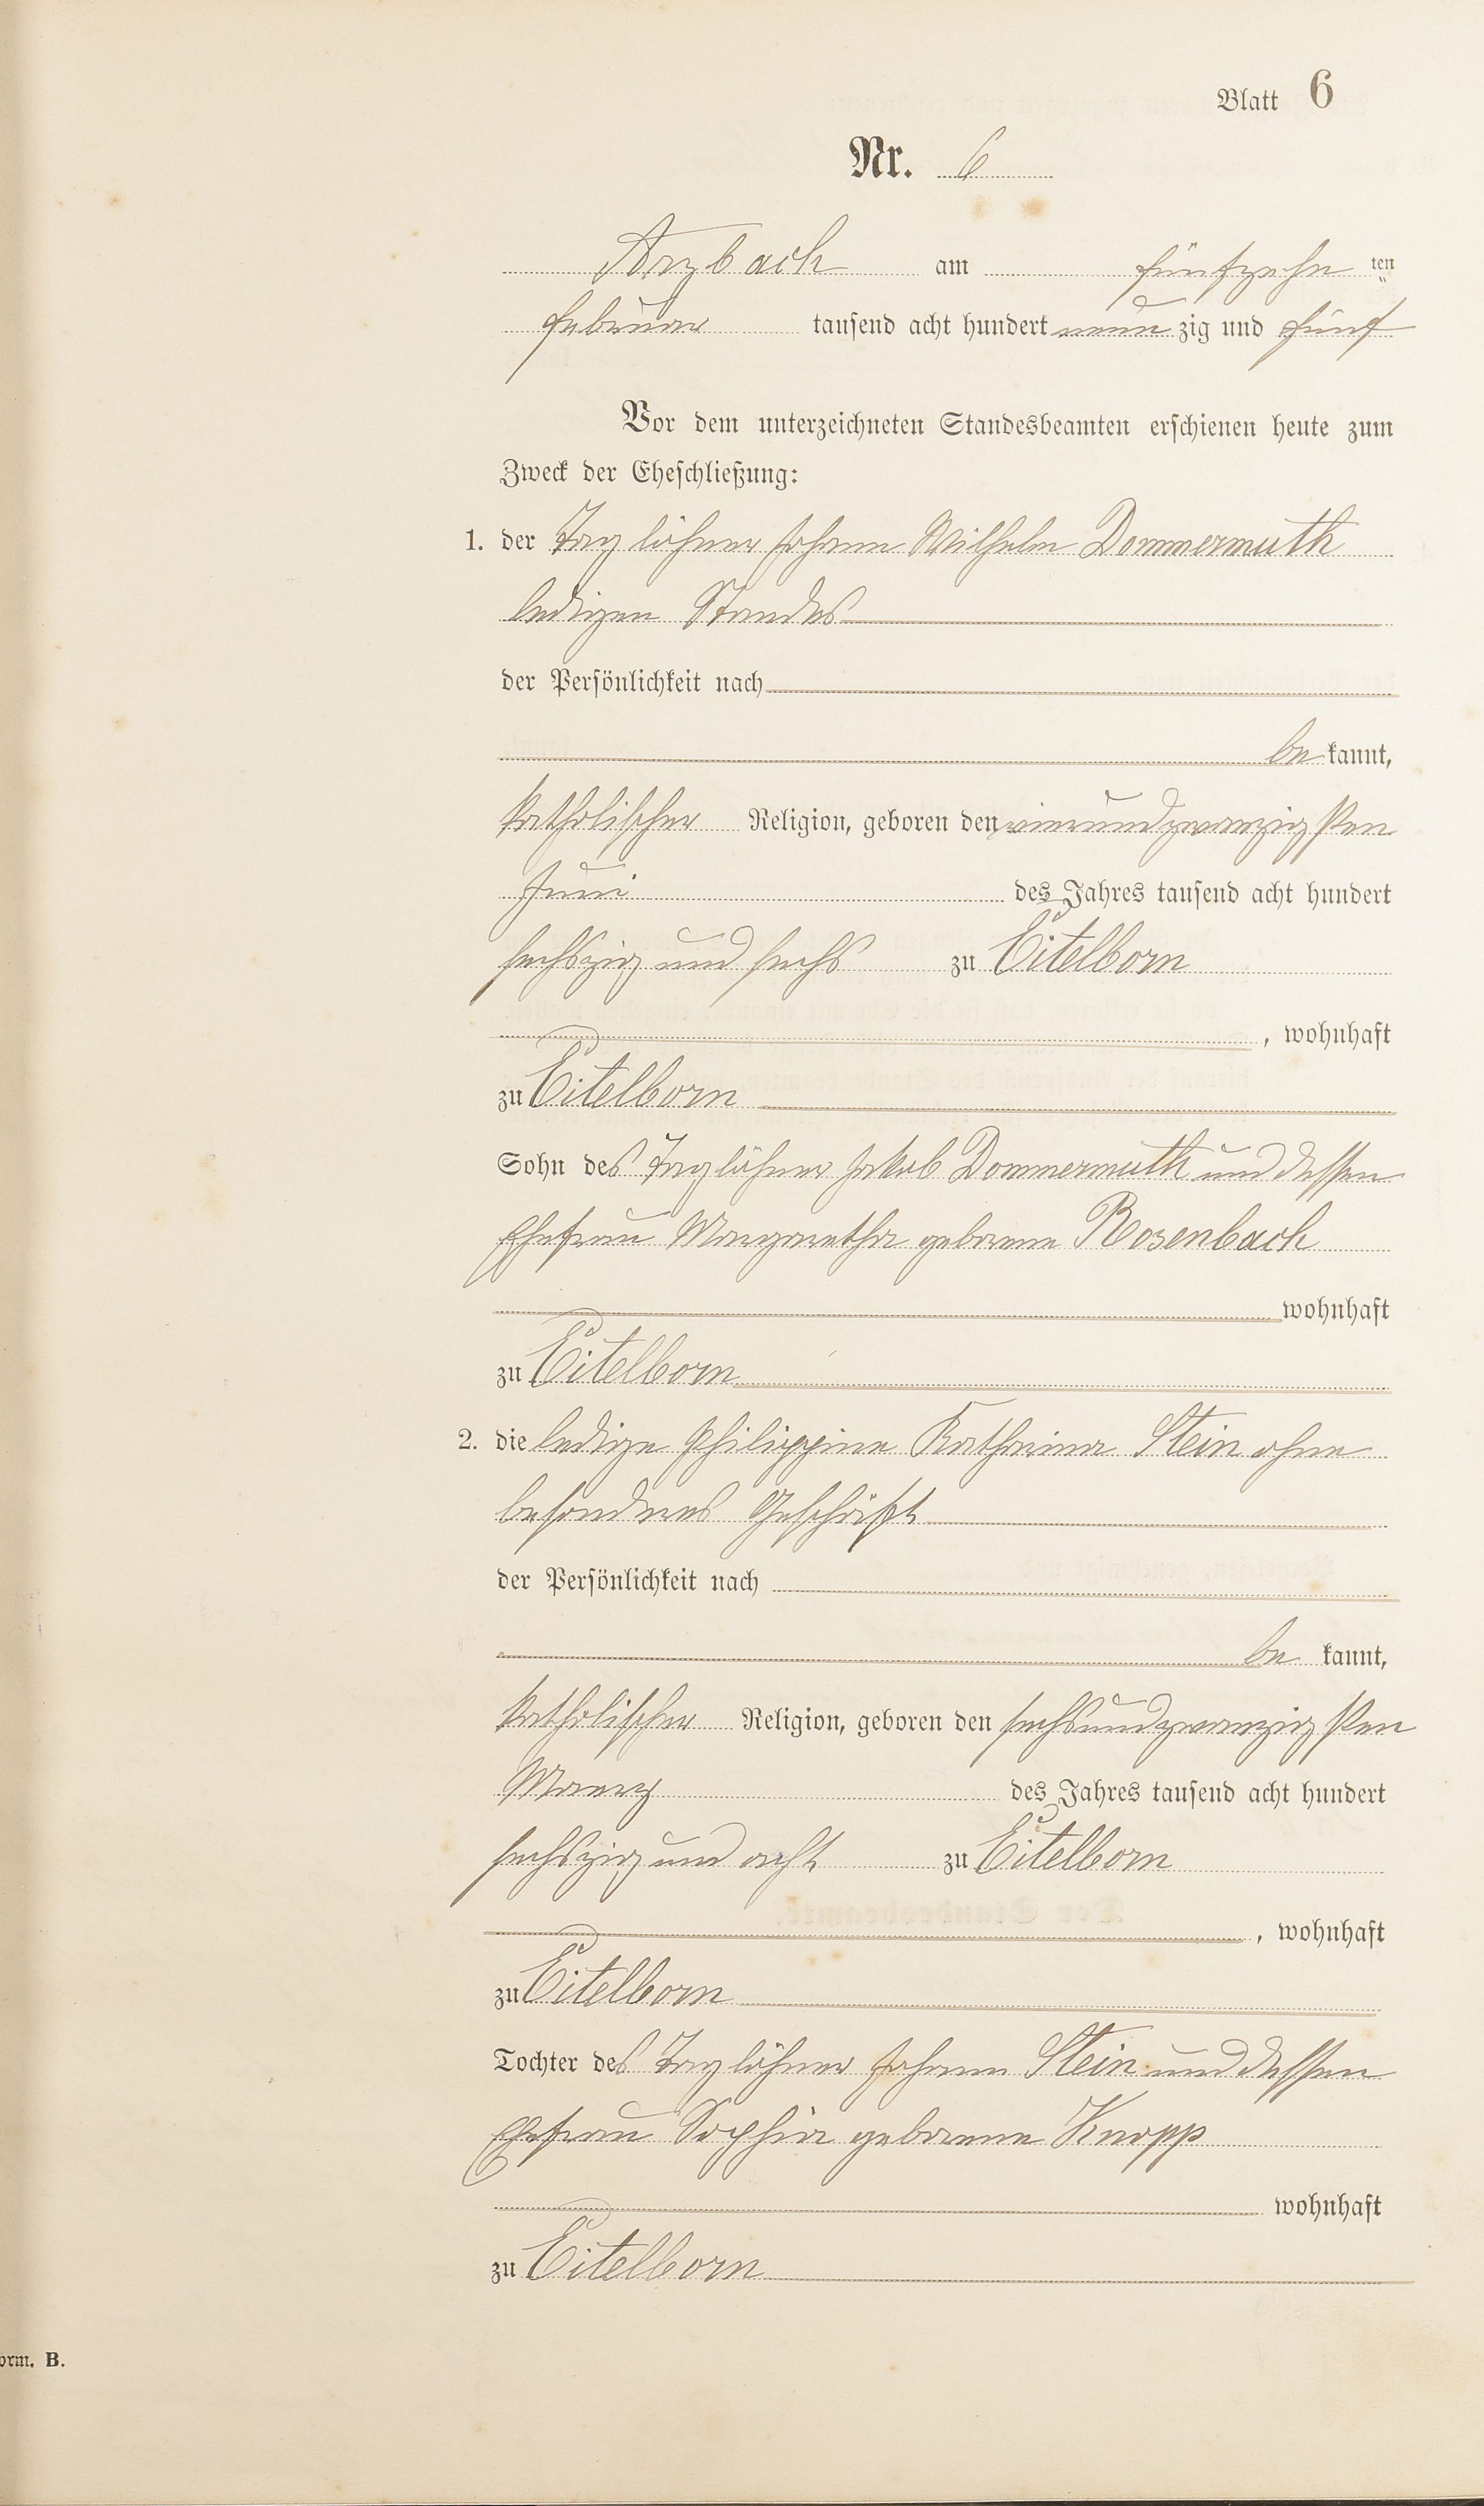 Blatt 6
Nr. 6
Arzbach am fünfzehn ten
Februar tausend acht hundert neun zig und fünf
Vor dem unterzeichneten Standesbeamten erschienen heute zum
Zweck der Eheschließung:
1. der Taglöhner Johann Wilhelm Dommermuth
ledigen Standes
der Persönlichkeit nach
be kannt,
katholischer Religion, geboren den vierundzwanzigsten
Juni des Jahres tausend acht hundert
sechszig und sechs zu Eitelborn
, wohnhaft
zu Eitelborn
Sohn des Taglöhner Jakob Dommermuth und dessen
Ehefrau Margaretha geborene Rosenbach
wohnhaft
zu Eitelborn
2. die ledige Philippine Katharina Stein ohne
besonderes Geschäft
der Persönlichkeit nach
be kannt,
katholischer Religion, geboren den sechsundzwanzigsten
Maerz des Jahres tausend acht hundert
sechszig und acht zu Eitelborn
, wohnhaft
zu Eitelborn
Tochter des Taglöhner Johann Stein und dessen
Ehefrau Sophia geborene Knopp
wohnhaft
zu Eitelborn
orm. B.